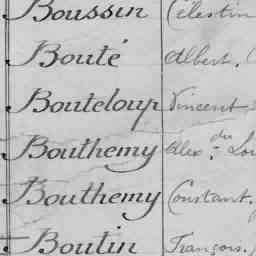 Boussin Célestin
Bouté Albert.
Bouteloup Vincent
Bouthemy Alex.
Bouthemy Constant.
Boutin François.